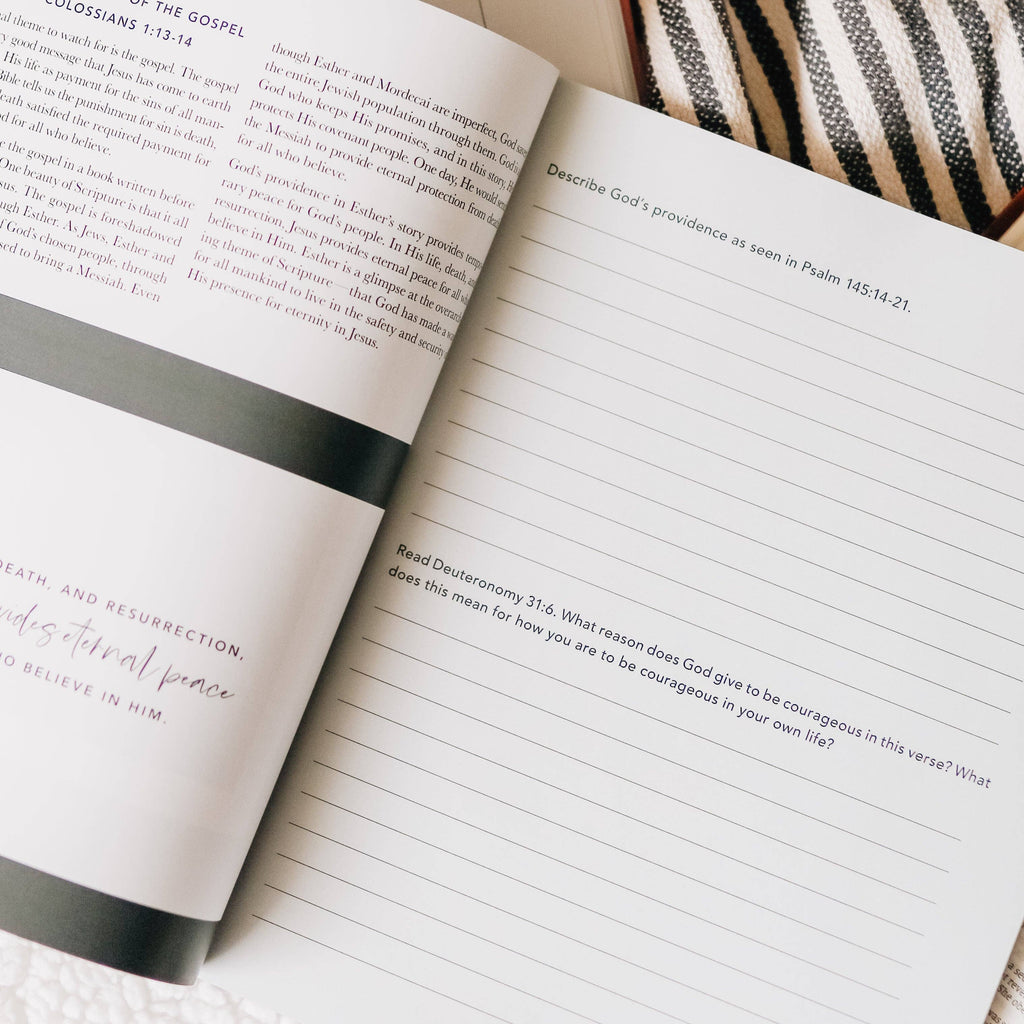 OF THE GOSPEL
COLOSSIANS 1:13-14
theme to watch for is the gospel. The gospel
good message that Jesus has come to earth
His life as payment for the sins of all man-
Bible tells us the punishment for sin is death.
death satisfied the required payment for
for all who believe.
the gospel in a book written before
One beauty of Scripture is that it all
The gospel is foreshadowed
Esther. As Jews, Esther and
of God's chosen people, through
to bring a Messiah. Even
though Esther and Mordecai are imperfect, God
the entire Jewish population through them. God is
God who keeps His promises, and in this story,
protects His covenant people. One day, He would
the Messiah to provide eternal protection from
for all who believe.
God's providence in Esther's story provides
rary peace for God's people. In His life, death,
resurrection, Jesus provides eternal peace for all
believe in Him. Esther is a glimpse at the
ing theme of Scripture—that God has made a
for all mankind to live in the safety and security
His presence for eternity in Jesus.
DEATH, AND RESURRECTION,
eternal peace
BELIEVE IN HIM.
Describe God's providence as seen in Psalm 145:14-21.
Read Deuteronomy 31:6. What reason does God give to be courageous in this verse? What
does this mean for how you are to be courageous in your own life?